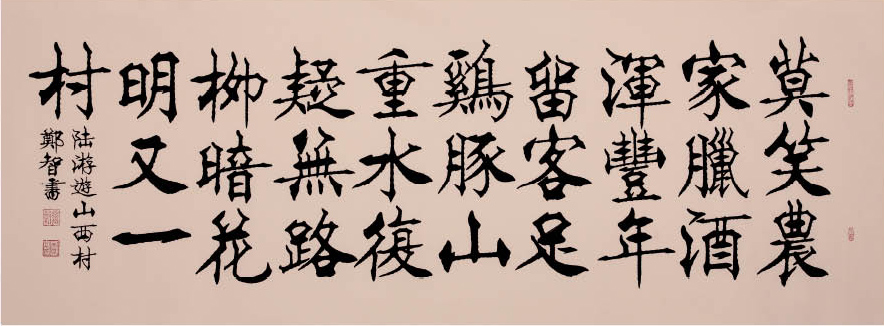 莫笑農
家臘酒
渾豐年
留客足
鷄豚山
重水復
疑無路
柳暗花
明又一
村
陸游遊山西村
鄭智書